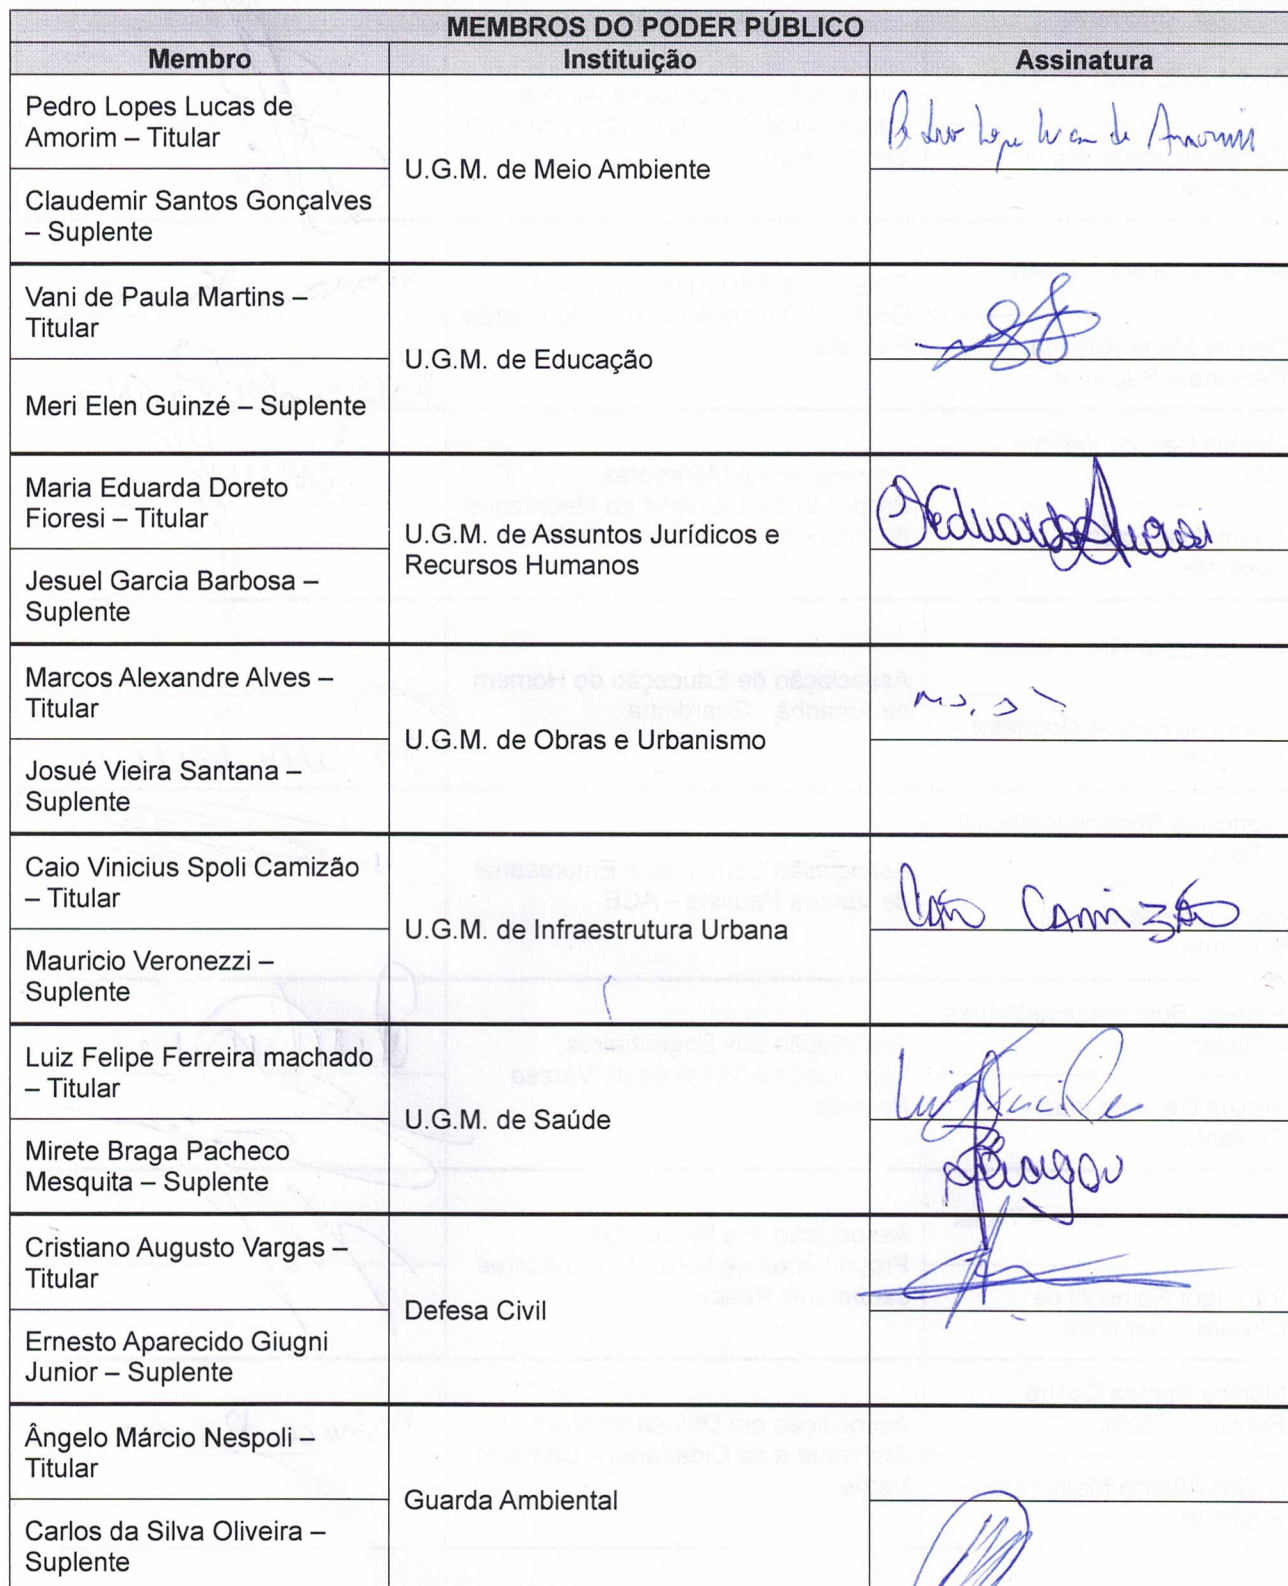 MEMBROS DO PODER PÚBLICO
Membro Instituição Assinatura
Pedro Lopes Lucas de
Amorim – Titular
U.G.M. de Meio Ambiente
Pedro Lopes Lucas de Amorim
Claudemir Santos Gonçalves
– Suplente
Vani de Paula Martins –
Titular
U.G.M. de Educação
Meri Elen Guinzé – Suplente
Maria Eduarda Doreto
Fioresi – Titular
U.G.M. de Assuntos Jurídicos e
Recursos Humanos
Jesuel Garcia Barbosa –
Suplente
Marcos Alexandre Alves –
Titular
U.G.M. de Obras e Urbanismo
Josué Vieira Santana –
Suplente
Caio Vinicius Spoli Camizão
– Titular
U.G.M. de Infraestrutura Urbana
Caio Camizão
Mauricio Veronezzi –
Suplente
Luiz Felipe Ferreira machado
– Titular
U.G.M. de Saúde
Mirete Braga Pacheco
Mesquita – Suplente
Cristiano Augusto Vargas –
Titular
Defesa Civil
Ernesto Aparecido Giugni
Junior – Suplente
Ângelo Márcio Nespoli –
Titular
Guarda Ambiental
Carlos da Silva Oliveira –
Suplente